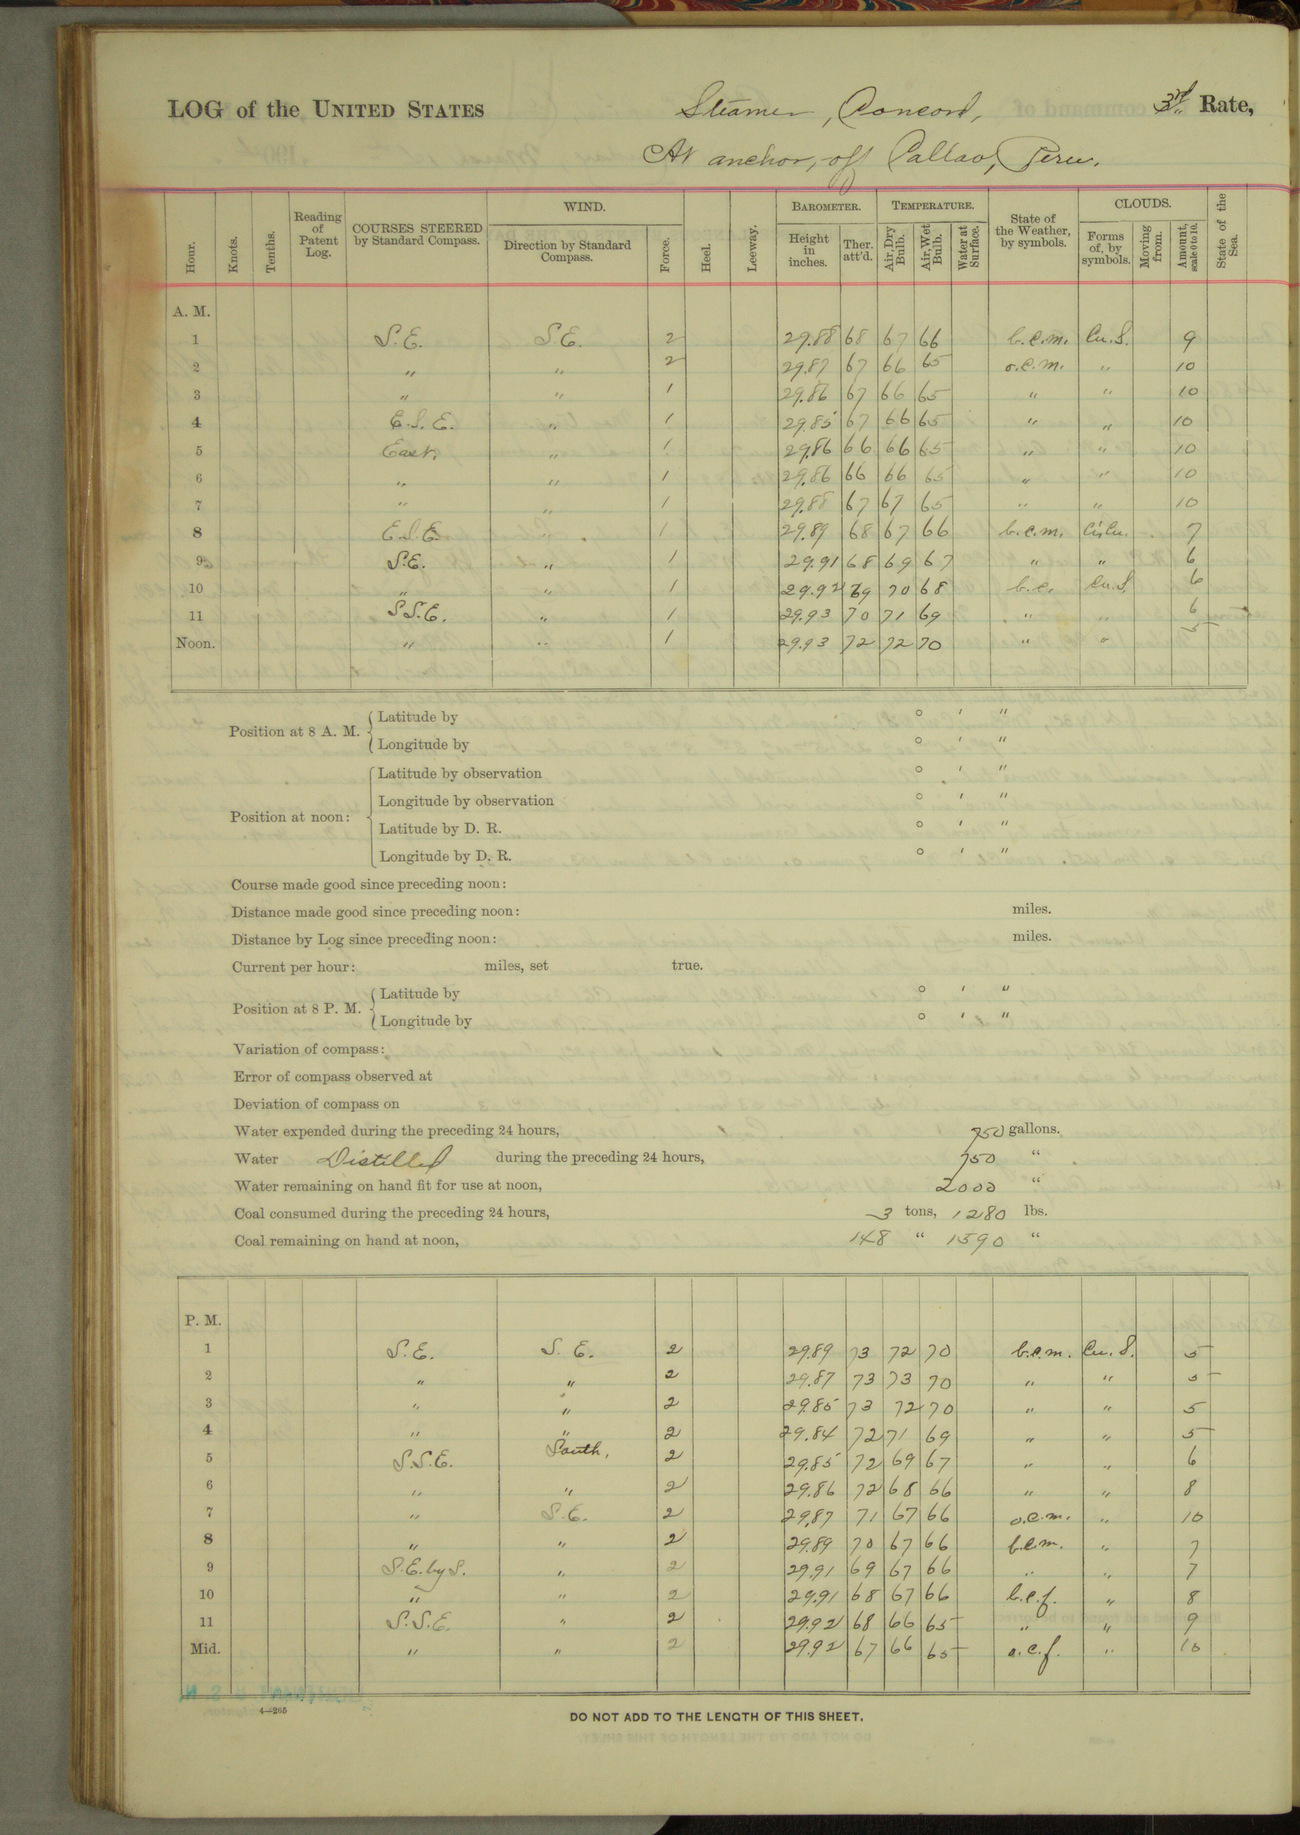 LOG of the UNITED STATES Steamer, Concord, 3rd Rate,
At anchor, off Callao, Peru.
Hour. Knots. Tenths. Reading of Patent Log. COURSES STEERED by Standard Compass. WIND. Direction by Standard Compass. Force. Heel. Leeway. BAROMETER. Height in inches. Ther. att'd. TEMPERATURE. Air, Dry Bulb. Air, Wet Bulb. Water at Surface. State of the Weather, by symbols. CLOUDS. Forms of, by symbols. Moving from. Amount, scale 0 to 10. State of the Sea.
A. M.
1 S.E. S.E. 2 29.88 68 67 66 b.c.m. Cu.S. 9
2 " " 2 29.87 67 66 65 o.c.m. " 10
3 " " 1 29.86 67 66 65 " " 10
4 E.S.E. " 1 29.85 67 66 65 " " 10
5 East, " 1 29.86 66 66 65 " " 10
6 " " 1 29.86 66 66 65 " " 10
7 " " 1 29.88 67 67 65 " " 10
8 E.S.E. " 1 29.89 68 67 66 b.c.m. Ci.Cu. 7
9 S.E. " 1 29.91 68 69 67 " " 6
10 " " 1 29.92 69 70 68 b.c. Cu.S. 6
11 S.S.E. " 1 29.93 70 71 69 " " 6
Noon. " " 1 29.93 72 72 70 " " 5
Position at 8 A. M. Latitude by ° ′ ″
Longitude by ° ′ ″
Position at noon: Latitude by observation ° ′ ″
Longitude by observation ° ′ ″
Latitude by D. R. ° ′ ″
Longitude by D. R. ° ′ ″
Course made good since preceding noon:
Distance made good since preceding noon: miles.
Distance by Log since preceding noon: miles.
Current per hour: miles, set true.
Position at 8 P. M. Latitude by ° ′ ″
Longitude by ° ′ ″
Variation of compass:
Error of compass observed at
Deviation of compass on
Water expended during the preceding 24 hours, 750 gallons.
Water Distilled during the preceding 24 hours, 750 "
Water remaining on hand fit for use at noon, 2000 "
Coal consumed during the preceding 24 hours, 3 tons, 1280 lbs.
Coal remaining on hand at noon, 148 " 1590 "
P. M.
1 S.E. S.E. 2 29.89 73 72 70 b.c.m. Cu.S. 5
2 " " 2 29.87 73 73 70 " " 5
3 " " 2 29.85 73 72 70 " " 5
4 " " 2 29.84 72 71 69 " " 5
5 S.S.E. South, 2 29.85 72 69 67 " " 6
6 " " 2 29.86 72 68 66 " " 8
7 " S.E. 2 29.87 71 67 66 o.c.m. " 10
8 " " 2 29.89 70 67 66 b.c.m. " 7
9 S.E. by S. " 2 29.91 69 67 66 " " 7
10 " " 2 29.91 68 67 66 b.c.f. " 8
11 S.S.E. " 2 29.92 68 66 65 " " 9
Mid. " " 2 29.92 67 66 65 o.c.f. " 10
4—265
DO NOT ADD TO THE LENGTH OF THIS SHEET.